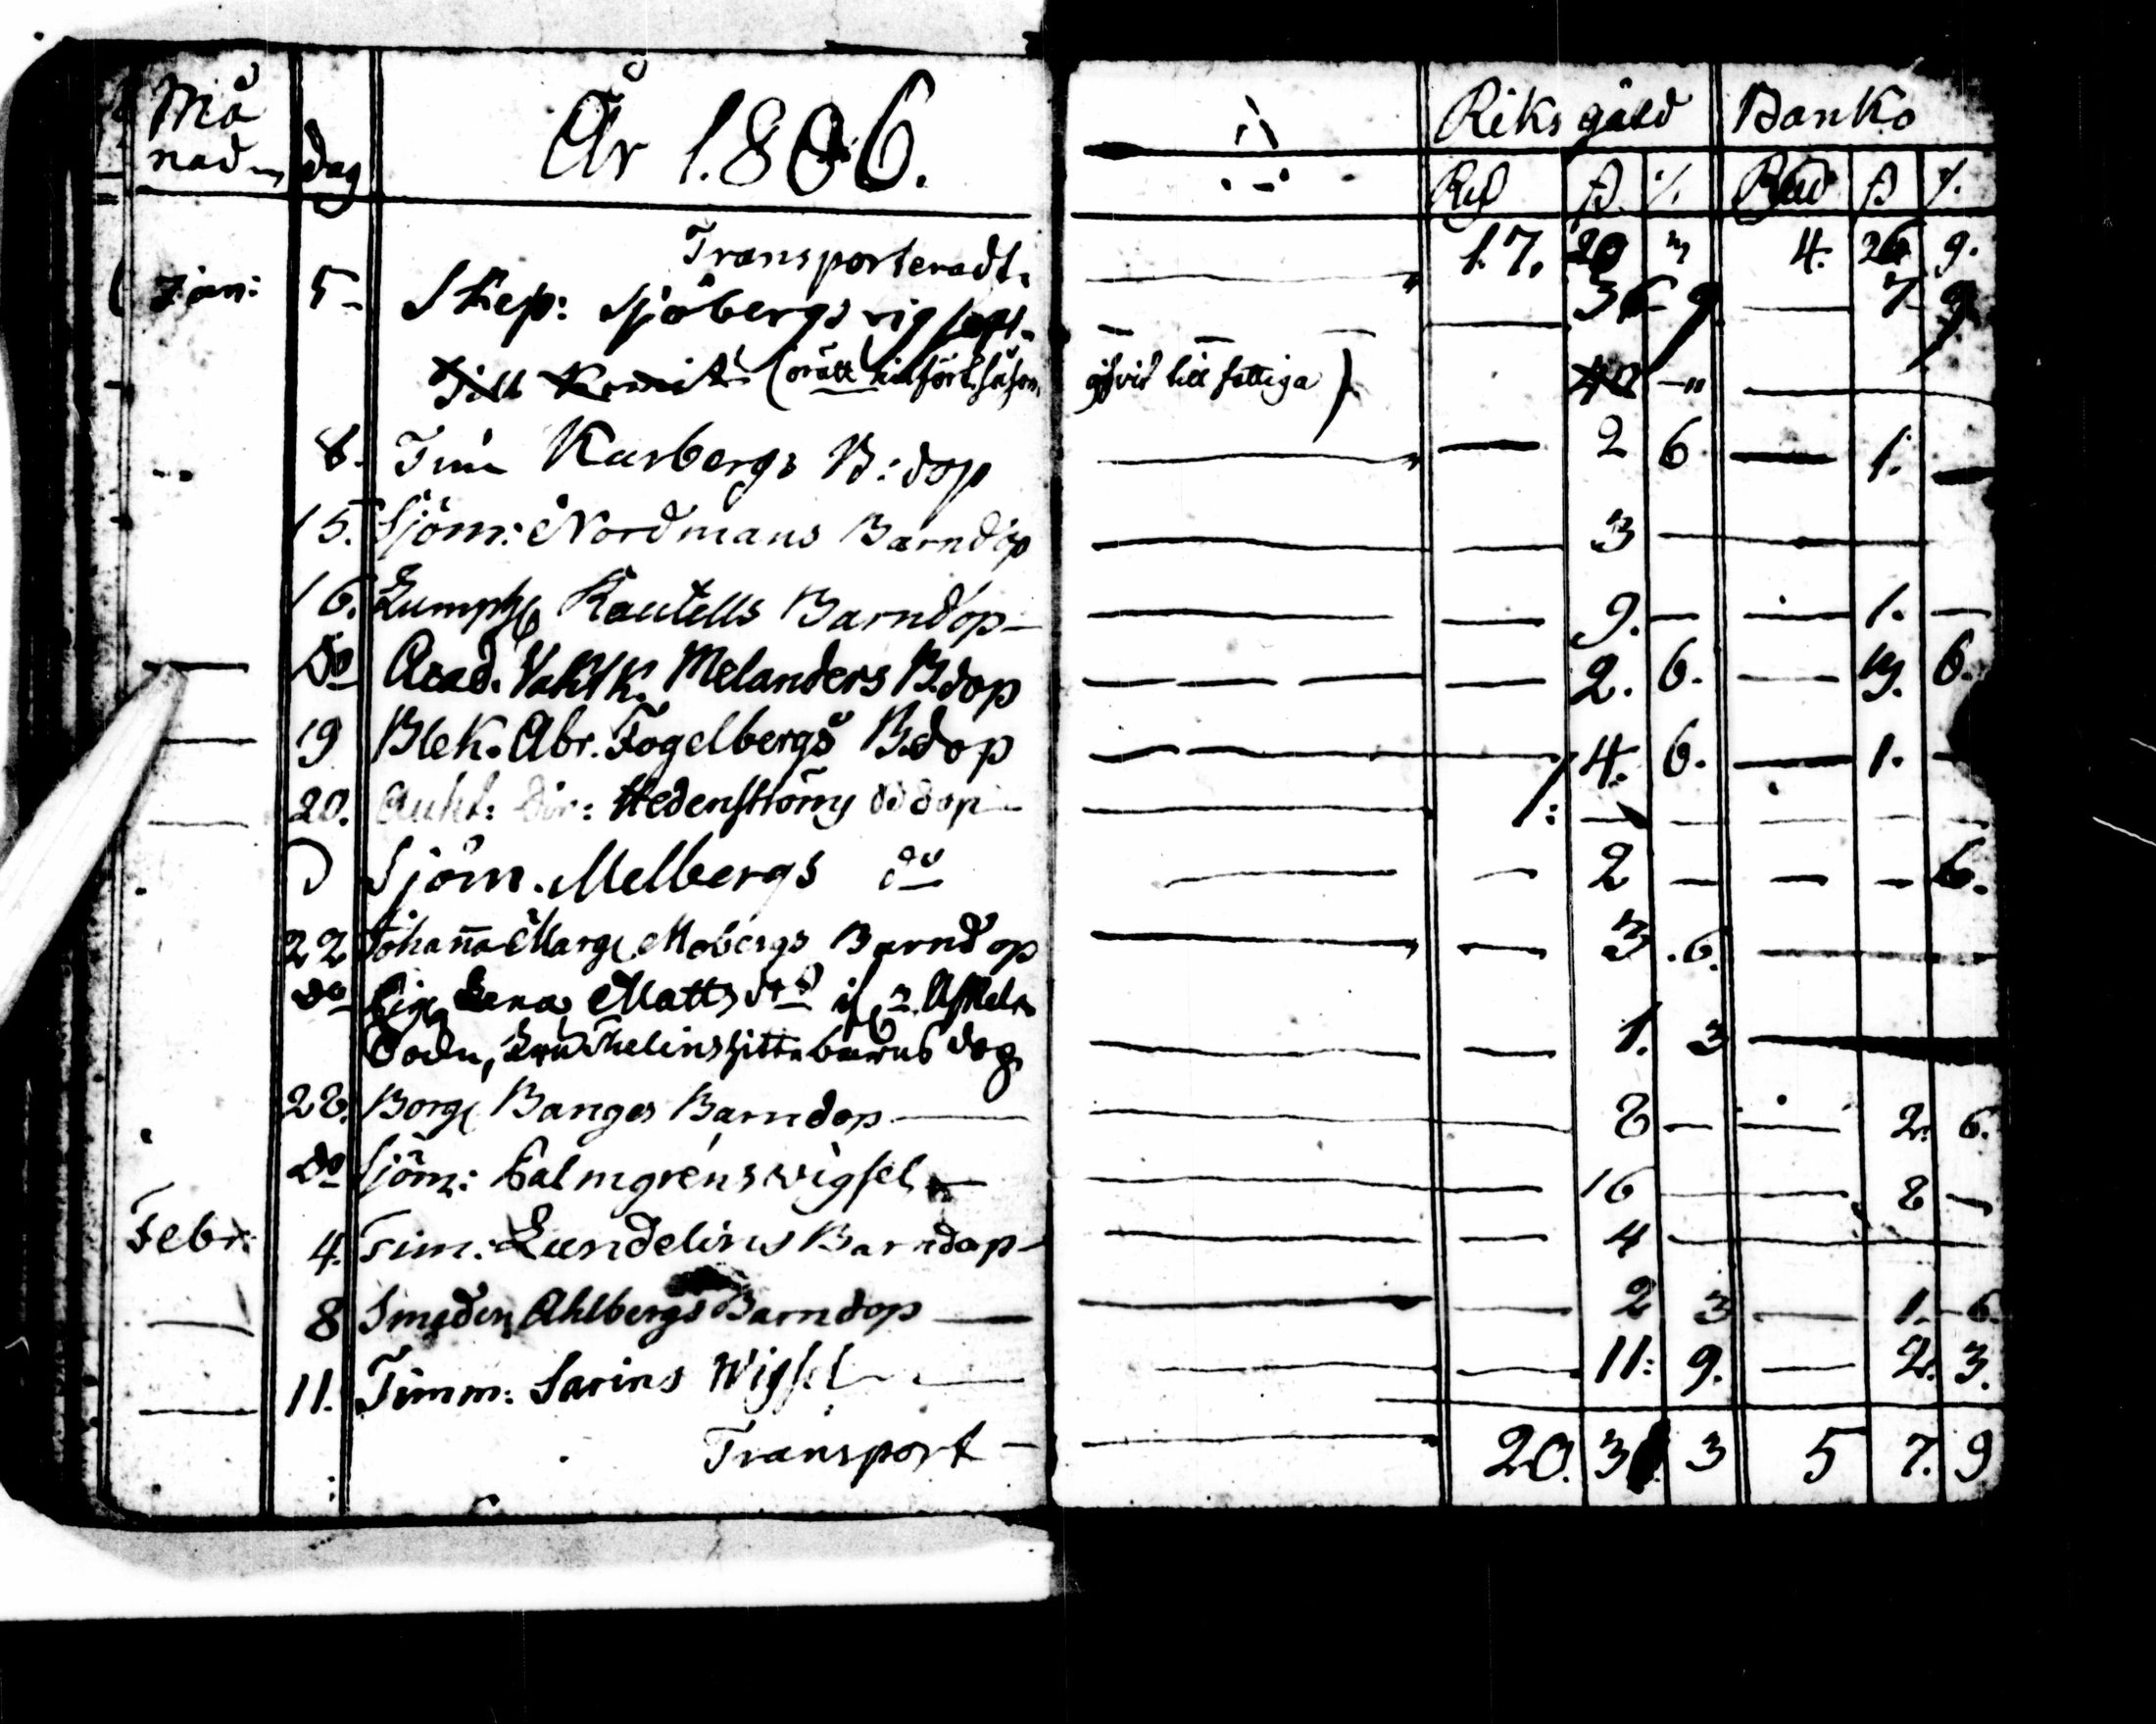 Må Riksgäld Banko
nad dag År 1.806. Rd ß /. Rd ß /.
Transporteradt. 17. 20 3 4. 26. 9.
Jan: 5 Skep: Sjöbergs vigsel. 36 9 7 9
Till (orätt gifvit till fattiga)
8. Tim Karbergs B:dop 2 6 1.
15. Sjöm: Nordmans Barndop 3
16. Rautells Barndop 9. 1.
Do Acad. Vaktk. Melanders B.dop 2. 6. 3. 6.
19 Blek. Abr. Fogelbergs B.dop 4. 6. 1.
20. Aukt: Dir: Hedenströms dop 1:
D Sjöm. Melbergs do 2 6.
22 Johanna Marg Mobergs Barndop 3. 6.
Do Lena Matts
Thelins barns dog 1. 3
28. Borg Banges Barndop 8 2. 6.
Do Sjöm: Calmgréns wigsel 16 8
Febr: 4. Tim. Lundelins Barndop 4
8 Smeden Ahlbergs Barndop 2 3 1. 6.
11. Timm: Sarins Wigsel 11: 9. 2. 3.
Transport 20. 3 3 5 7. 9